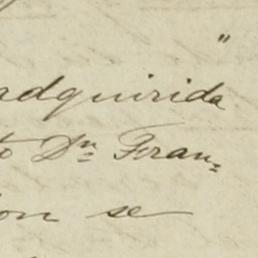 "
adquirida
to Dn Fran=
ion se